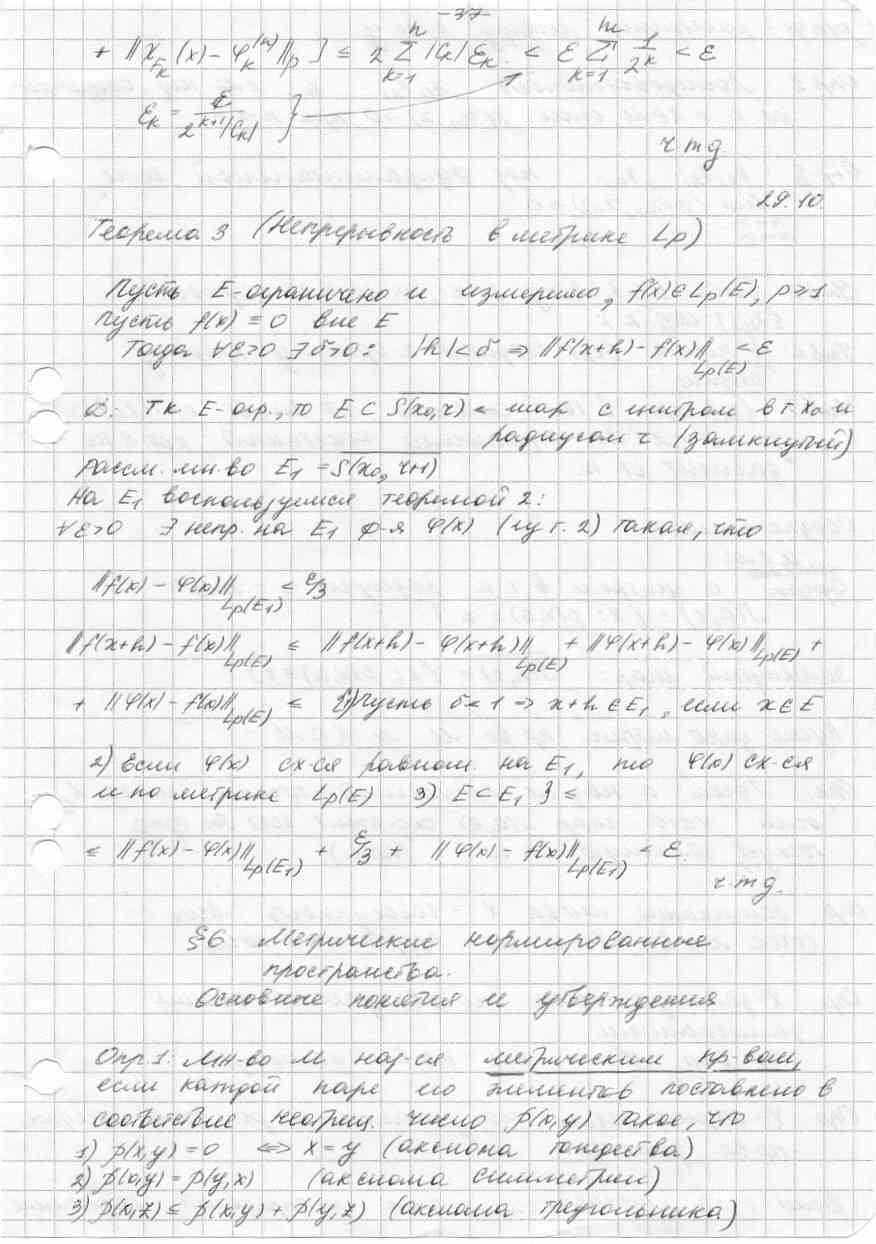 -37-
+ ||χ_{F_k}(x) - φ_k^{(n)}||_p } ≤ 2 Σ_{k=1}^{n} |C_k| ε_k < ε Σ_{k=1}^{n} 1/2^k < ε
ε_k = ε/(2^{k+1}|C_k|) }
ч т д
29.10.
Теорема 3 (Непрерывность в метрике Lp)
Пусть E-ограничено и измеримо, f(x) ∈ Lp(E), p ≥ 1
Пусть f(x) = 0 вне E
Тогда ∀ε>0 ∃δ>0: |h| < δ ⇒ ||f(x+h) - f(x)||_{Lp(E)} < ε
Д: Тк E-огр., то E ⊂ \overline{S(x₀, r)} ← шар с центром в т. x₀ и
радиусом r (замкнутый)
Рассм. мн-во E₁ = \overline{S(x₀, r+1)}
На E₁ воспользуемся теоремой 2:
∀ε>0 ∃ непр. на E₁ ф-я φ(x) (из т. 2) такая, что
||f(x) - φ(x)||_{Lp(E₁)} < ε/3
||f(x+h) - f(x)||_{Lp(E)} ≤ ||f(x+h) - φ(x+h)||_{Lp(E)} + ||φ(x+h) - φ(x)||_{Lp(E)} +
+ ||φ(x) - f(x)||_{Lp(E)} ≤ {1) Пусть δ < 1 ⇒ x+h ∈ E₁, если x ∈ E
2) Если φ(x) сх-ся равном. на E₁, то φ(x) сх-ся
и по метрике Lp(E) 3) E ⊂ E₁ } ≤
≤ ||f(x) - φ(x)||_{Lp(E₁)} + ε/3 + ||φ(x) - f(x)||_{Lp(E₁)} < ε.
ч.т.д.
§6 Метрические нормированные
пространства.
Основные понятия и утверждения
Опр 1: Мн-во M наз-ся метрическим пр-вом,
если каждой паре его элементов поставлено в
соответствие неотриц. число ρ(x,y) такое, что
1) ρ(x,y) = 0 ⇔ x = y (аксиома тождества)
2) ρ(x,y) = ρ(y,x) (аксиома симметрии)
3) ρ(x,z) ≤ ρ(x,y) + ρ(y,z) (аксиома треугольника)